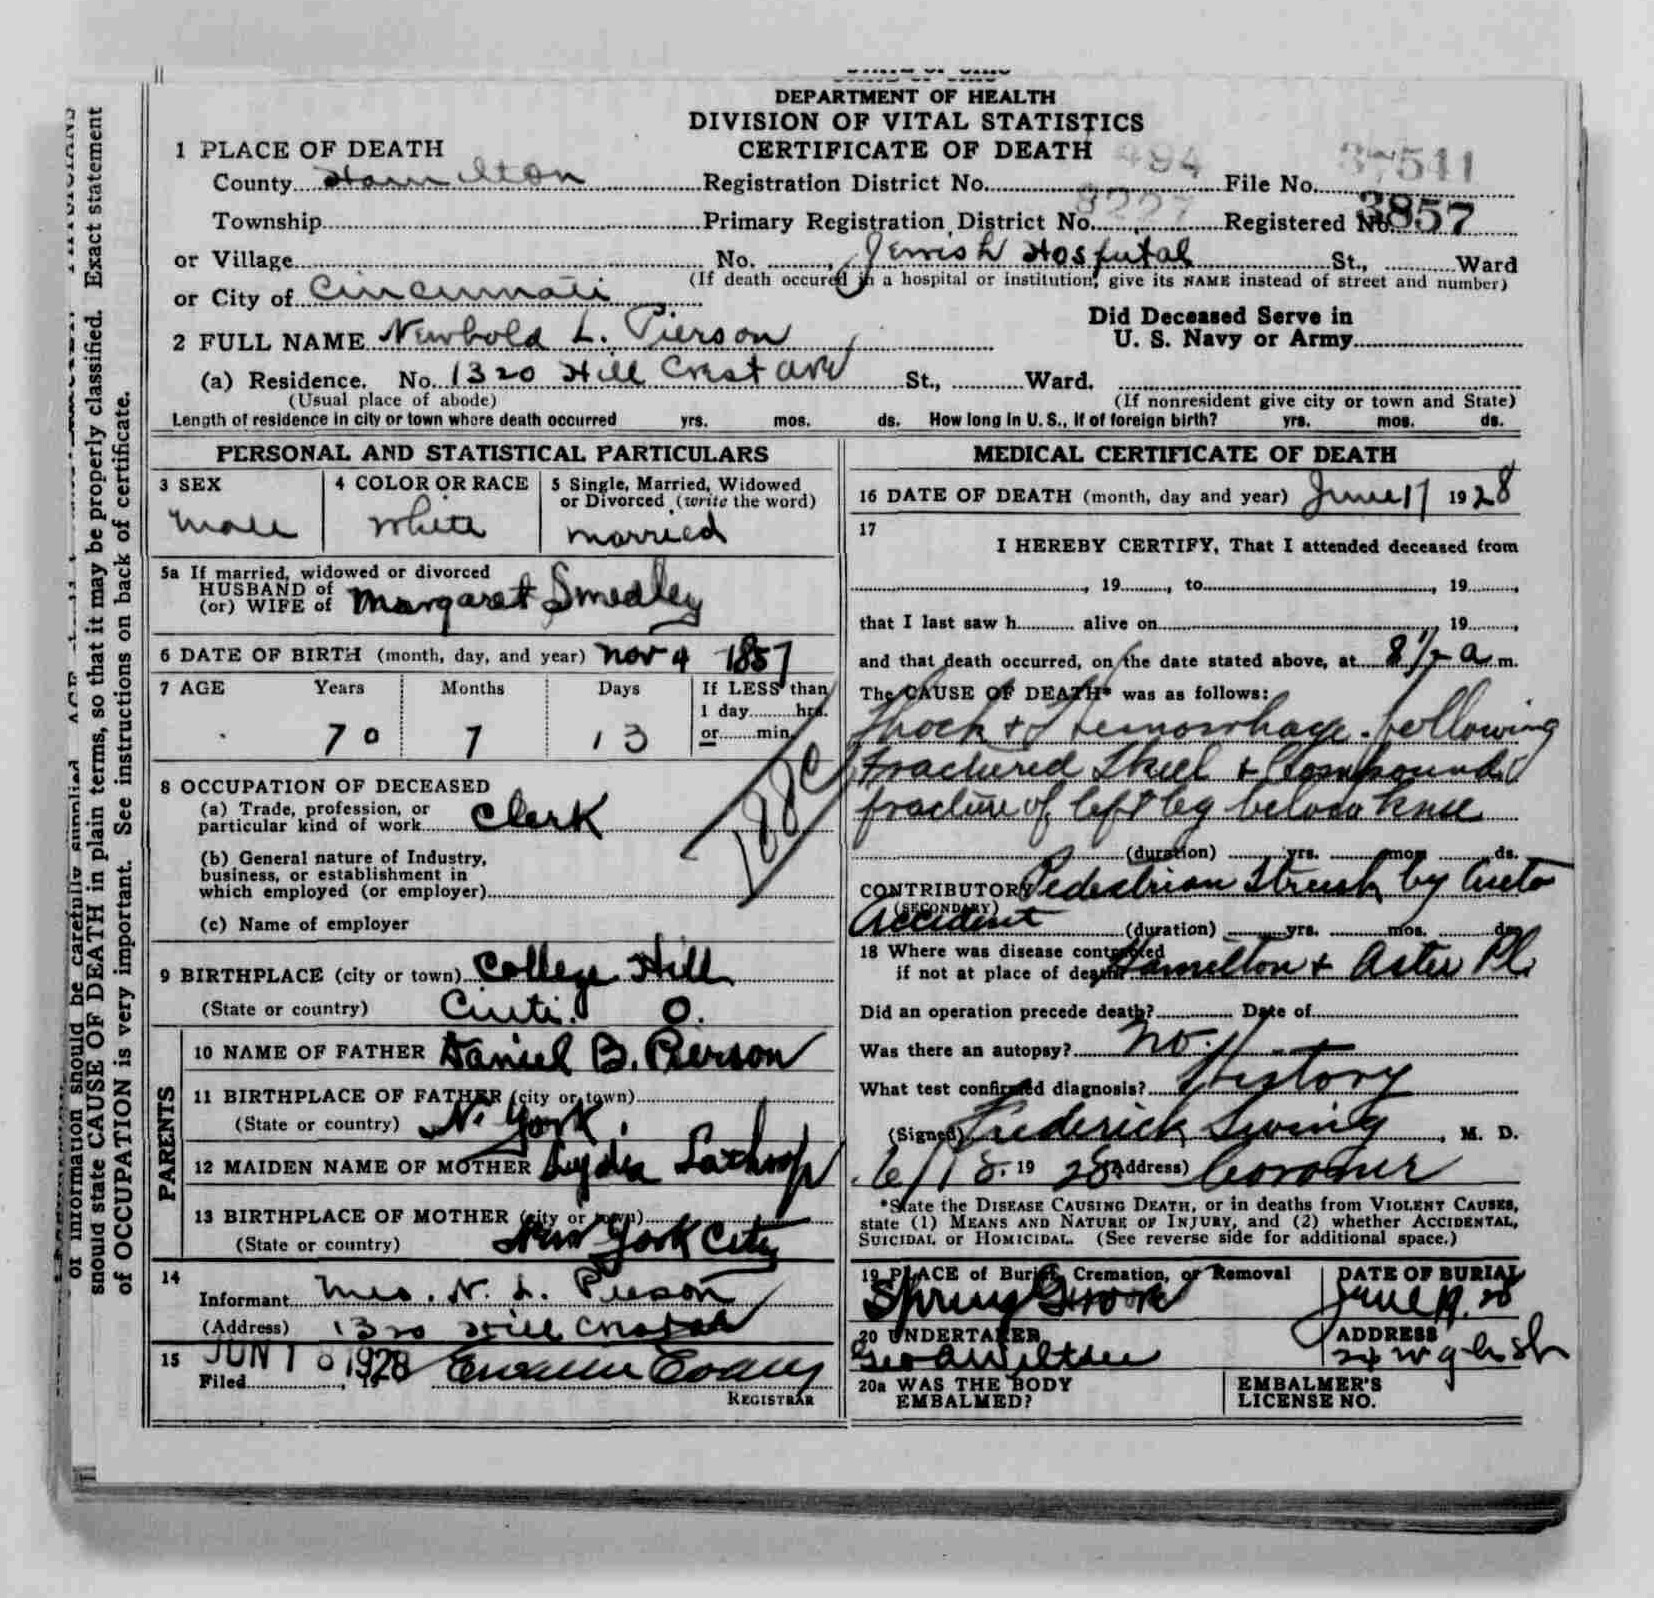 DEPARTMENT OF HEALTH
DIVISION OF VITAL STATISTICS
CERTIFICATE OF DEATH
1 PLACE OF DEATH
County Hamilton Registration District No. 494 File No. 37511
Township Primary Registration District No. 8227 Registered No. 3857
or Village No. Jewish Hospital St., Ward
(If death occured in a hospital or institution, give its NAME instead of street and number)
or City of Cincinnati
Did Deceased Serve in
U. S. Navy or Army
2 FULL NAME Newbold L. Pierson
(a) Residence. No. 1320 Hill Crest Ave St., Ward.
(Usual place of abode) (If nonresident give city or town and State)
Length of residence in city or town where death occurred yrs. mos. ds. How long in U. S., if of foreign birth? yrs. mos. ds.
PERSONAL AND STATISTICAL PARTICULARS
3 SEX
male
4 COLOR OR RACE
White
5 Single, Married, Widowed
or Divorced (write the word)
married
5a If married, widowed or divorced
HUSBAND of
(or) WIFE of Margaret Smedley
6 DATE OF BIRTH (month, day, and year) Nov 4 1857
7 AGE Years Months Days If LESS than
1 day hrs.
or min.
70 7 13
8 OCCUPATION OF DECEASED
(a) Trade, profession, or
particular kind of work Clerk
(b) General nature of Industry,
business, or establishment in
which employed (or employer)
(c) Name of employer
9 BIRTHPLACE (city or town) College Hill
(State or country) Cinti. O.
PARENTS
10 NAME OF FATHER Daniel B. Pierson
11 BIRTHPLACE OF FATHER (city or town)
(State or country) N. York.
12 MAIDEN NAME OF MOTHER Lydia Lathrop
13 BIRTHPLACE OF MOTHER (city or town)
(State or country) New York City
14
Informant Mrs. N. L. Pierson
(Address) 1320 Hill Crest
15 JUN 18 1928
Filed , 19
REGISTRAR
MEDICAL CERTIFICATE OF DEATH
16 DATE OF DEATH (month, day and year) June 17 1928
17
I HEREBY CERTIFY, That I attended deceased from
, 19 , to , 19 ,
that I last saw h alive on , 19 ,
and that death occurred, on the date stated above, at 8 1/2 a m.
The CAUSE OF DEATH* was as follows:
Shock & Hemorrhage following
fractured Skull & Compound
fracture of left leg below knee
(duration) yrs. mos. ds.
CONTRIBUTORY Pedestrian Struck by Auto
(SECONDARY)
Accident (duration) yrs. mos. ds.
18 Where was disease contracted
if not at place of death? Hamilton & Aster Pl.
Did an operation precede death? Date of
Was there an autopsy? No.
What test confirmed diagnosis? History
(Signed) Frederick Swing, M. D.
6/18. 1928 (Address) Coroner
*State the DISEASE CAUSING DEATH, or in deaths from VIOLENT CAUSES,
state (1) MEANS AND NATURE OF INJURY, and (2) whether ACCIDENTAL,
SUICIDAL or HOMICIDAL. (See reverse side for additional space.)
19 PLACE of Burial, Cremation, or Removal
Spring Grove
DATE OF BURIAL
June 19. 28
20 UNDERTAKER
Geo A Wiltsee
ADDRESS
24 W 9th St
20a WAS THE BODY
EMBALMED?
EMBALMER'S
LICENSE NO.
of information should be carefully supplied.
should state CAUSE OF DEATH in plain terms, so that it may be properly classified. Exact statement
of OCCUPATION is very important. See instructions on back of certificate.